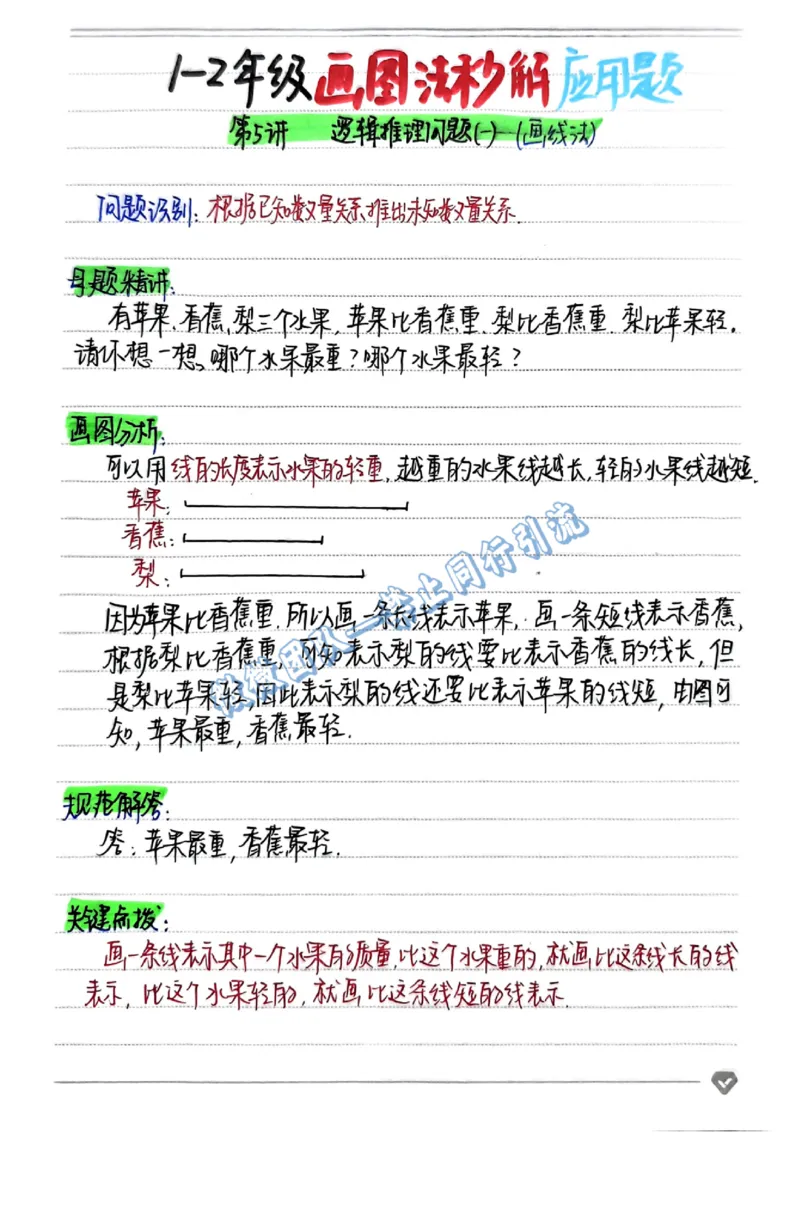 1-2年级画图法秒解应用题
第5讲 逻辑推理问题(一)—(画线法)
问题识别：根据已知数量关系,推出未知数量关系.
母题精讲：
有苹果、香蕉、梨三个水果,苹果比香蕉重、梨比香蕉重、梨比苹果轻。
请你想一想,哪个水果最重？哪个水果最轻？
画图分析：
可以用线的长度表示水果的轻重,越重的水果线越长,轻的水果线越短.
苹果：
香蕉：
梨：
因为苹果比香蕉重,所以画一条长线表示苹果,画一条短线表示香蕉,
根据梨比香蕉重,可知表示梨的线要比表示香蕉的线长,但
是梨比苹果轻,因此表示梨的线还要比表示苹果的线短,由图可
知,苹果最重,香蕉最轻.
规范解答：
答：苹果最重,香蕉最轻.
关键点拨：
画一条线表示其中一个水果的质量,比这个水果重的,就画比这条线长的线
表示,比这个水果轻的,就画比这条线短的线表示.